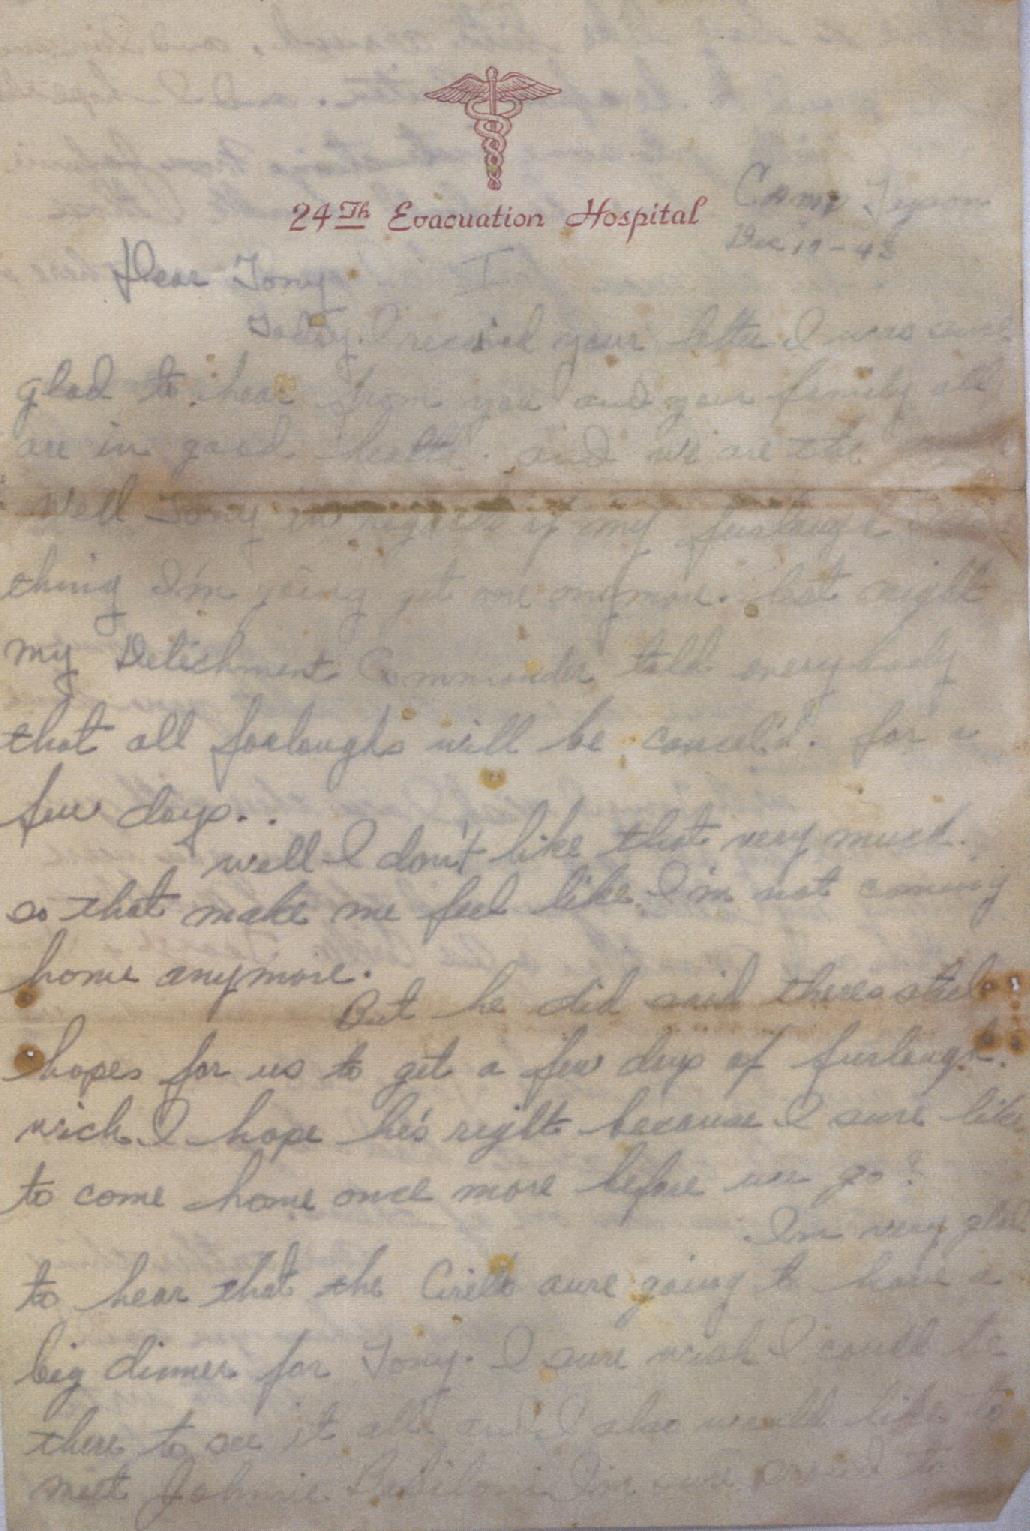 24Th Evacuation Hospital
Camp Tyson
Dec 19-43
Dear Tony
I
Today I received your letter I was sure
glad to hear from you and your family all
are in good health. and we are the
Well Tony in regards of my furlough
thing I'm going get one anymore. last night
my Detichment Commander told everybody
that all foeloughs will be cancel'd. for a
few days..
well I don't like that very much.
so that make me feel like I'm not coming
home anymore.
But he did said theres still
hopes for us to get a few days of furlough.
wich I hope he's right because I sure like
to come home once more before we go?
I'm very glad
to hear that the aure going to have a
big dinner for Tony. I sure wish I could be
there to see it all and I also would like to
meet Johnie I'm sure to